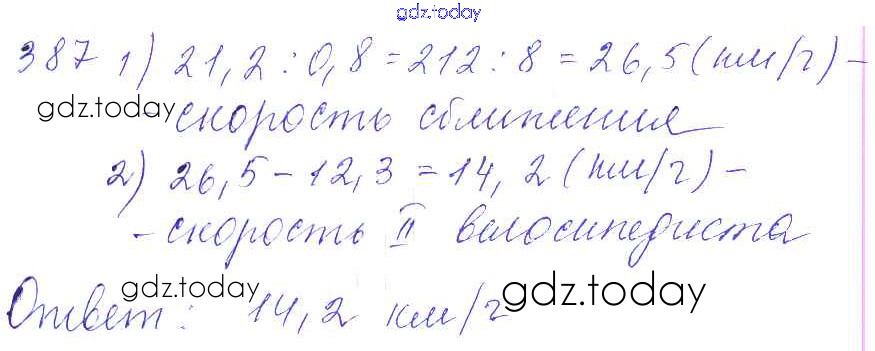 gdz.today
387 1) 21,2 : 0,8 = 212 : 8 = 26,5 (км/ч) –
gdz.today
– скорость сближения
2) 26,5 – 12,3 = 14,2 (км/ч) –
– скорость II велосипедиста
gdz.today gdz.today
Ответ: 14,2 км/ч